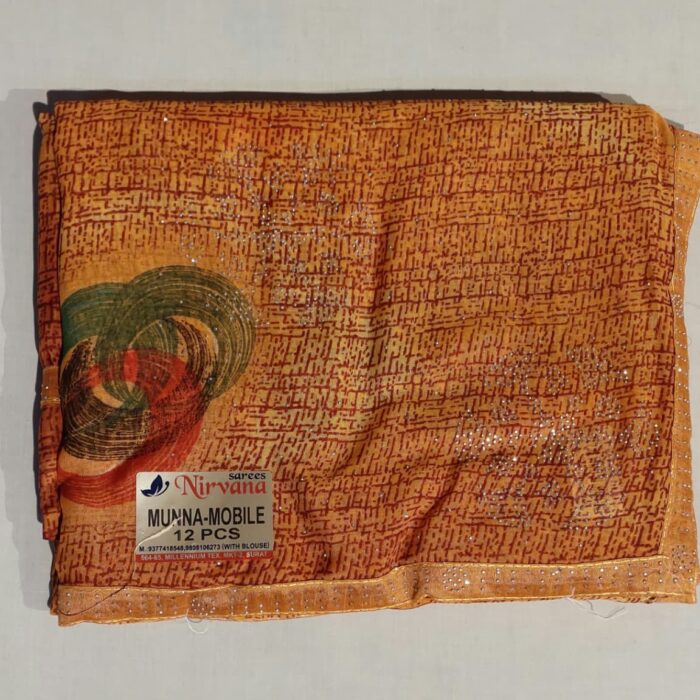 sarees
Nirvana
MUNNA-MOBILE
12 PCS
M.:9377418548,9898106273 (WITH BLOUSE)
564-65, MILLENNIUM TEX. MKT-2, SURAT